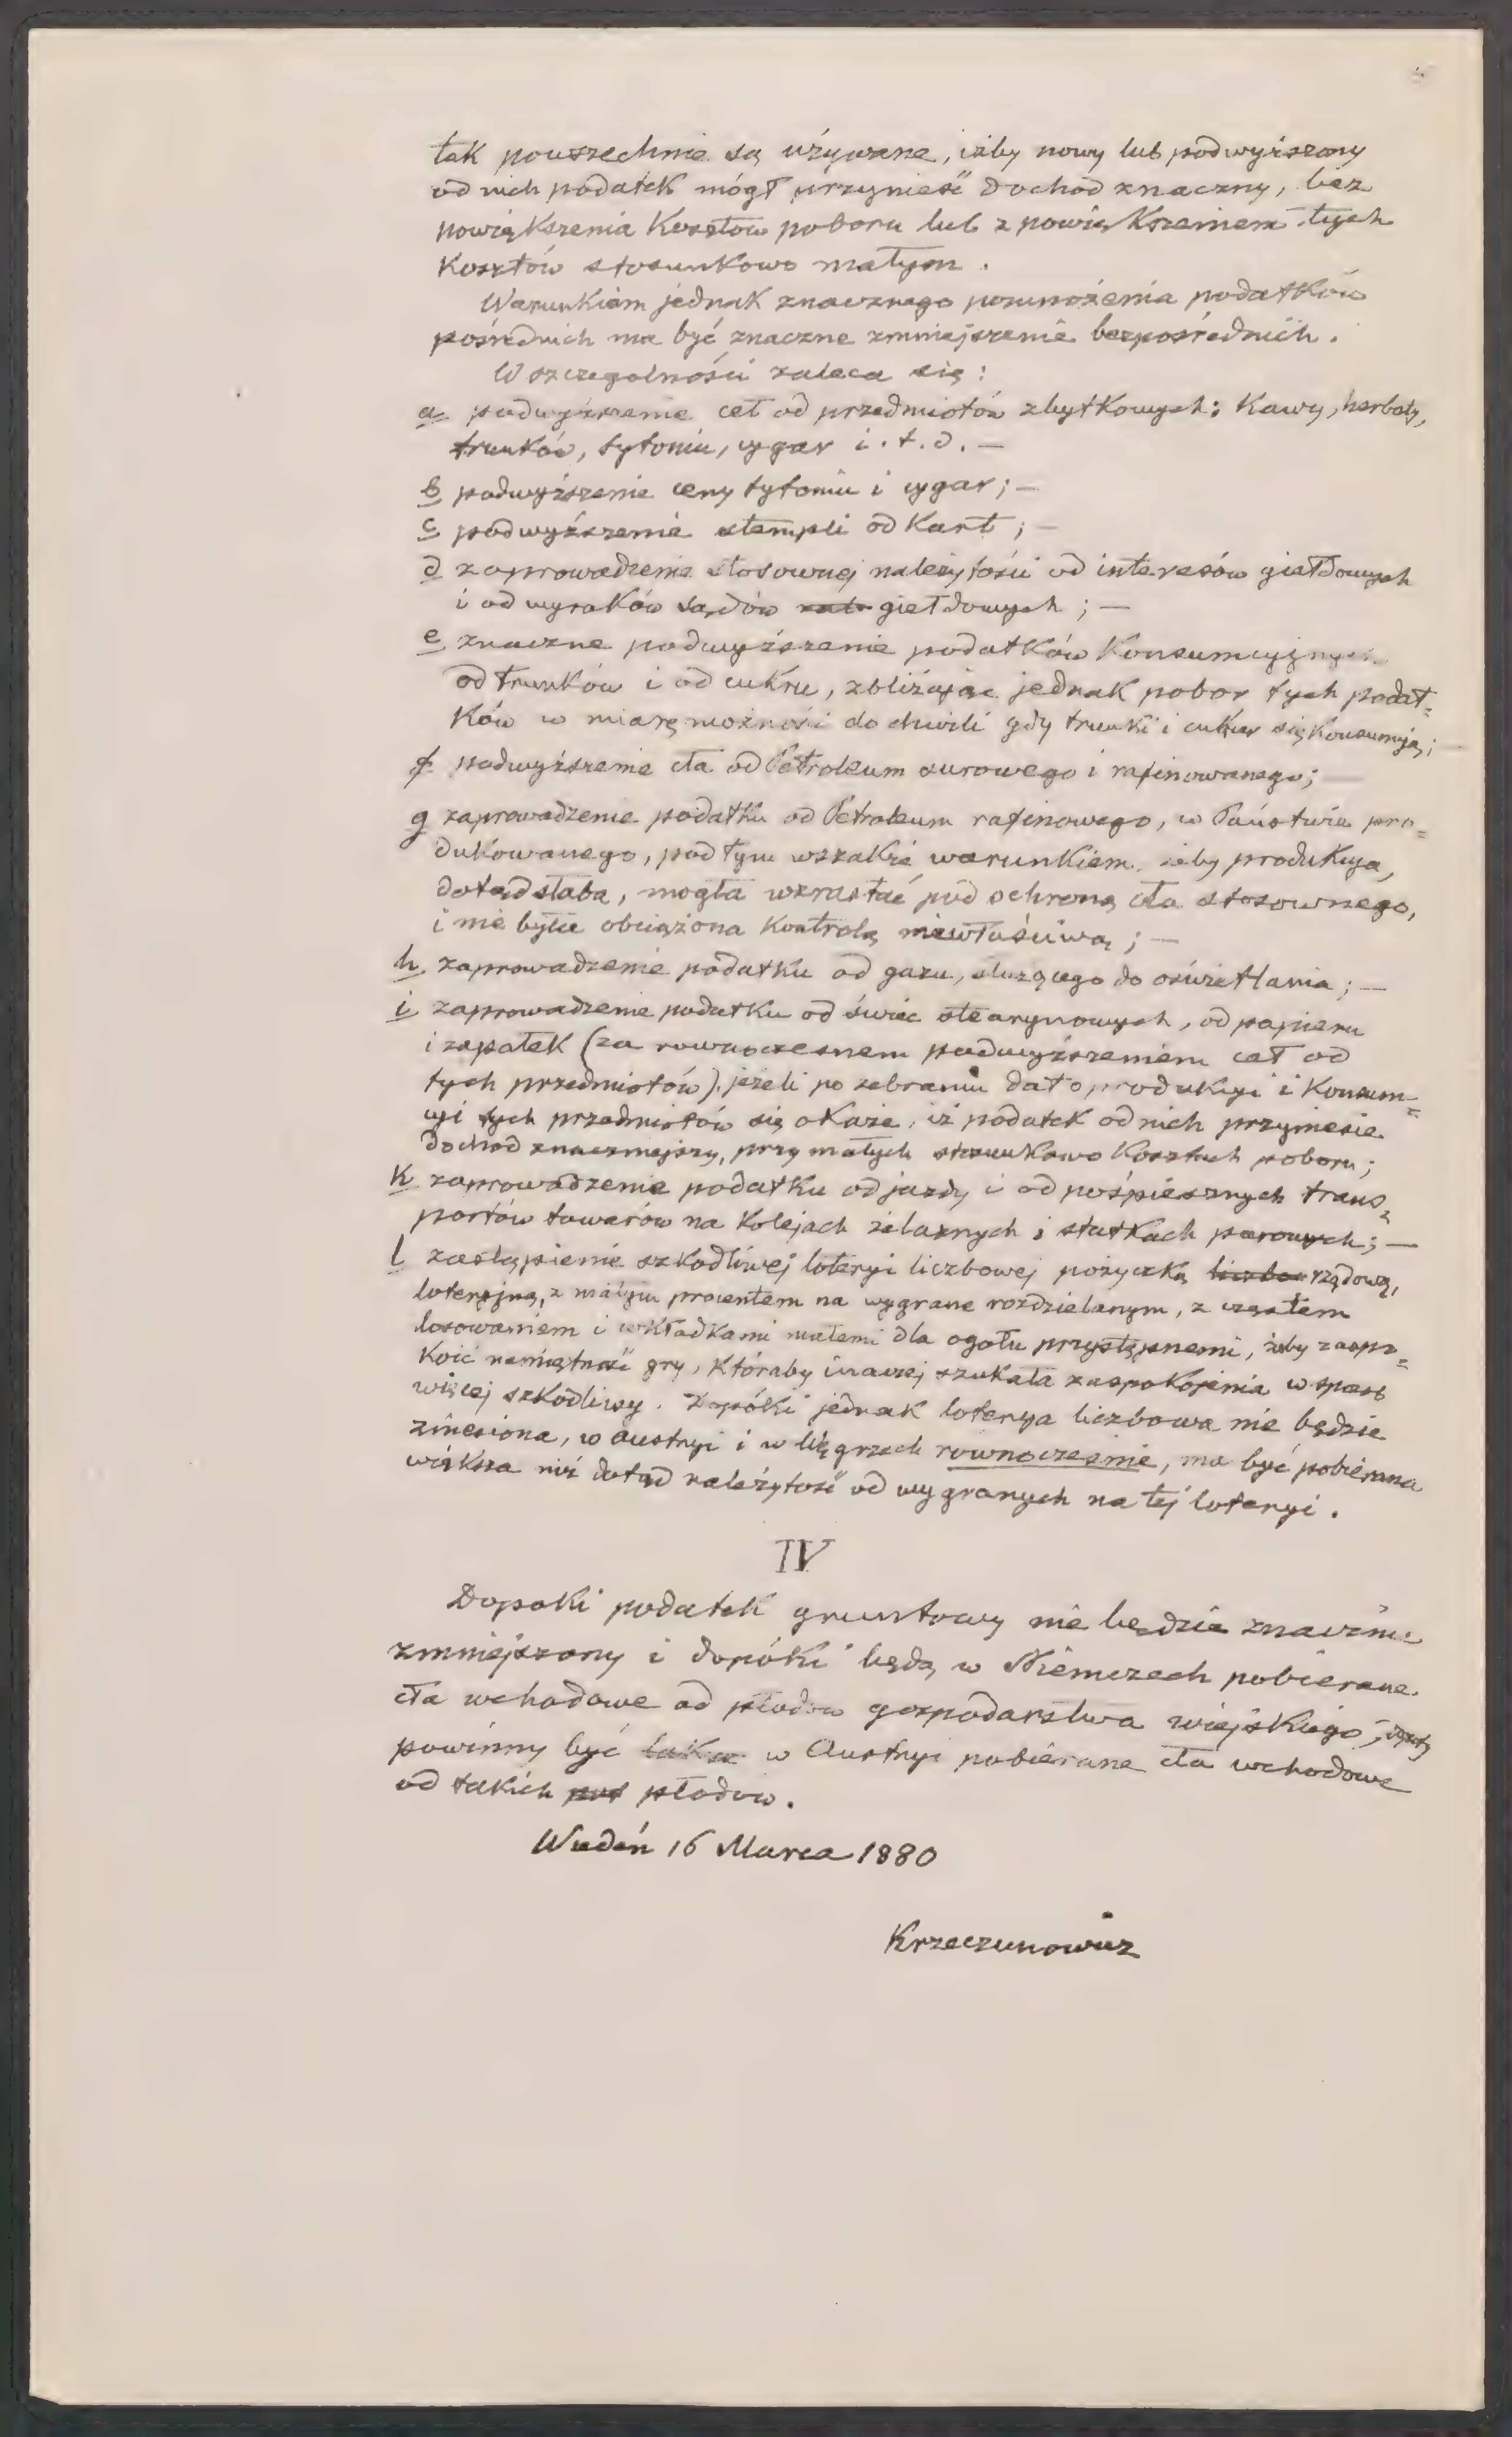 tak powszechnie są używane, iżby nowy lub podwyższony
od nich podatek mógł przynieść dochód znaczny, bez
powiększenia kosztów poboru lub z powiększeniem tych
kosztów stosunkowo małym.
Warunkiem jednak znacznego pomnożenia podatków
pośrednich ma być znaczne zmniejszenie bezpośrednich.
W szczególności zaleca się:
a podwyższenie ceł od przedmiotów zbytkowych: kawy, herbaty,
trunków, tytoniu, cygar i. t. d. —
b podwyższenie ceny tytoniu i cygar; —
c podwyższenie stempli od kart; —
d zaprowadzenie stosownej należytości od interesów giełdowych
i od wyroków sądów giełdowych; —
e znaczne podwyższenie podatków konsumcyjnych
od trunków i od cukru, zbliżając jednak pobor tych podat=
ków w miarę możności do chwili gdy trunki i cukier się konsumują; —
f podwyższenie cła od Petroleum surowego i rafinowanego; —
g zaprowadzenie podatku od Petroleum rafinowego, w Państwie pro=
dukowanego, pod tym wszakże warunkiem, żeby produkcya,
dotąd słaba, mogła wzrastać pod ochroną cła stosownego,
i nie była obciążona kontrolą niewłaściwą; —
h zaprowadzenie podatku od gazu, służącego do oświetlania; —
i zaprowadzenie podatku od świec stearynowych, od papieru
i zapałek (za równoczesnem podwyższeniem ceł od
tych przedmiotów), jeżeli po zebraniu dat o produkcyi i konsum=
cyi tych przedmiotów się okaże, iż podatek od nich przyniesie
dochód znaczniejszy, przy małych stosunkowo kosztach poboru;
k zaprowadzenie podatku od jazdy i od pośpiesznych trans=
portów towarów na kolejach żelaznych i statkach parowych; —
l zastąpienie szkodliwej loteryi liczbowej pożyczką liczbo rządową,
loteryjną, z małym procentem na wygrane rozdzielanym, z częstem
losowaniem i wkładkami małemi dla ogółu przystępnemi, żeby zaspo=
koić namiętność gry, któraby inaczej szukała zaspokojenia w sposób
więcej szkodliwy. Dopóki jednak loterya liczbowa nie będzie
zniesiona, w Austryi i w Węgrzech równocześnie, ma być pobierana
większa niż dotąd należytość od wygranych na tej loteryi.
IV
Dopóki podatek gruntowy nie będzie znacznie
zmniejszony i dopóki będą w Niemczech pobierane
cła wchodowe od płodów gospodarstwa wiejskiego,
powinny być także w Austryi pobierane cła wchodowe
od takich płodów.
Wiedeń 16 Marca 1880
Krzeczunowicz